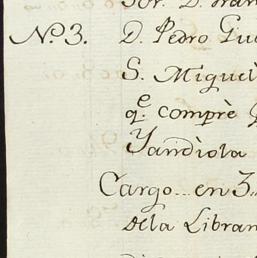 Sor. D. Fran
Nº. 3. D. Pedro Gu
S. Miguel
qe. comprè
Yandiola
Cargo... en 3..
dela Libran